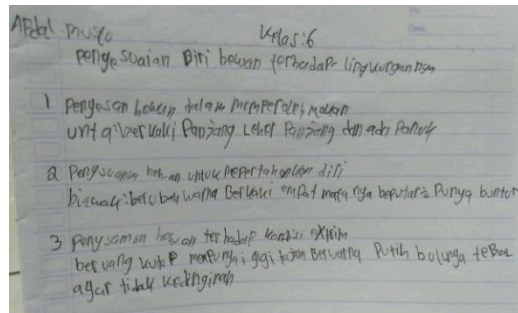 Afdal musto Kelas:6
pengesuaian Diri hewan terhadap lingkungannya
1 penyesan hewan dalam memperoleh makan
unta:berkaki Panjang Leher Panjang dan ada Ponuk
2 hewan untuk mepertahankan diri
berubah warna Berkaki empat mata nya beputar2 Punya buntor
3 hewan terhadap kondisi exirim
beruang kutup menpunyai gigi tajam Berwarna Putih bulunga tebal
agar tidak kedinginah